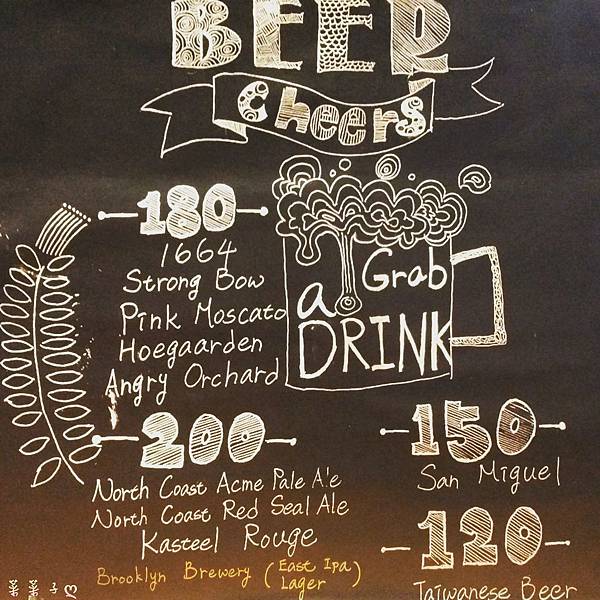 BEER
Cheers
180
1664
Strong Bow
Pink Moscato
Hoegaarden
Angry Orchard
Grab
a
DRINK
200
North Coast Acme Pale Ale
North Coast Red Seal Ale
Kasteel Rouge
Brooklyn Brewery (East Ipa
Lager)
150
San Miguel
120
Taiwanese Beer